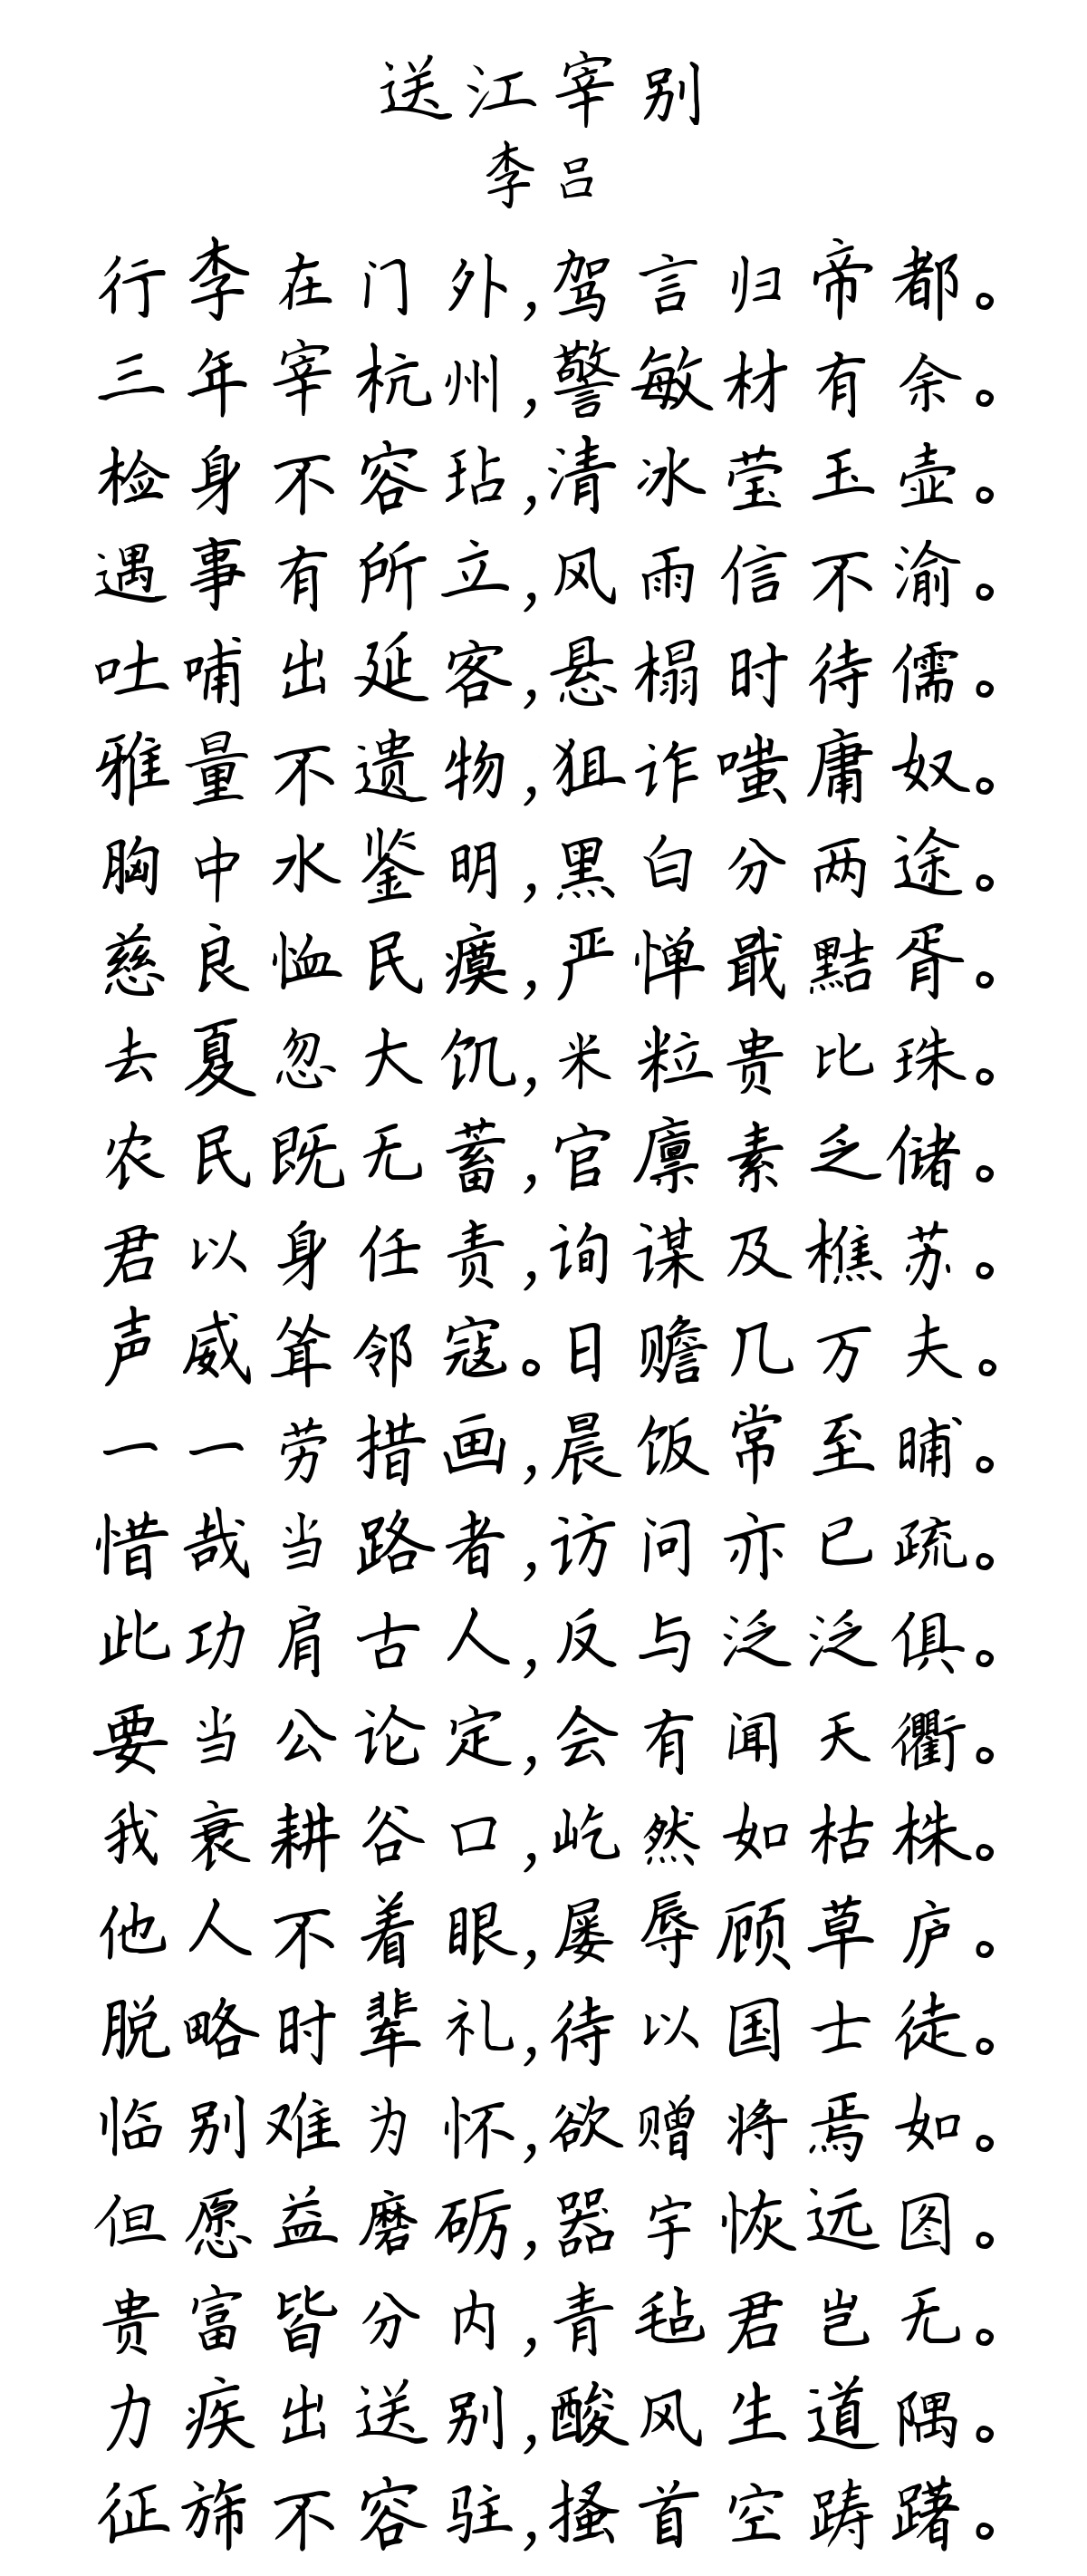 送江宰别
李吕
行李在门外,驾言归帝都。
三年宰杭州,警敏材有余。
检身不容玷,清冰莹玉壶。
遇事有所立,风雨信不渝。
吐哺出延客,悬榻时待儒。
雅量不遗物,狙诈嗤庸奴。
胸中水鉴明,黑白分两途。
慈良恤民瘼,严惮戢黠胥。
去夏忽大饥,米粒贵比珠。
农民既无蓄,官廪素乏储。
君以身任责,询谋及樵苏。
声威耸邻寇。日赡几万夫。
一一劳措画,晨饭常至晡。
惜哉当路者,访问亦已疏。
此功肩古人,反与泛泛俱。
要当公论定,会有闻天衢。
我衰耕谷口,屹然如枯株。
他人不着眼,屡辱顾草庐。
脱略时辈礼,待以国士徒。
临别难为怀,欲赠将焉如。
但愿益磨砺,器宇恢远图。
贵富皆分内,青毡君岂无。
力疾出送别,酸风生道隅。
征旆不容驻,搔首空踌躇。